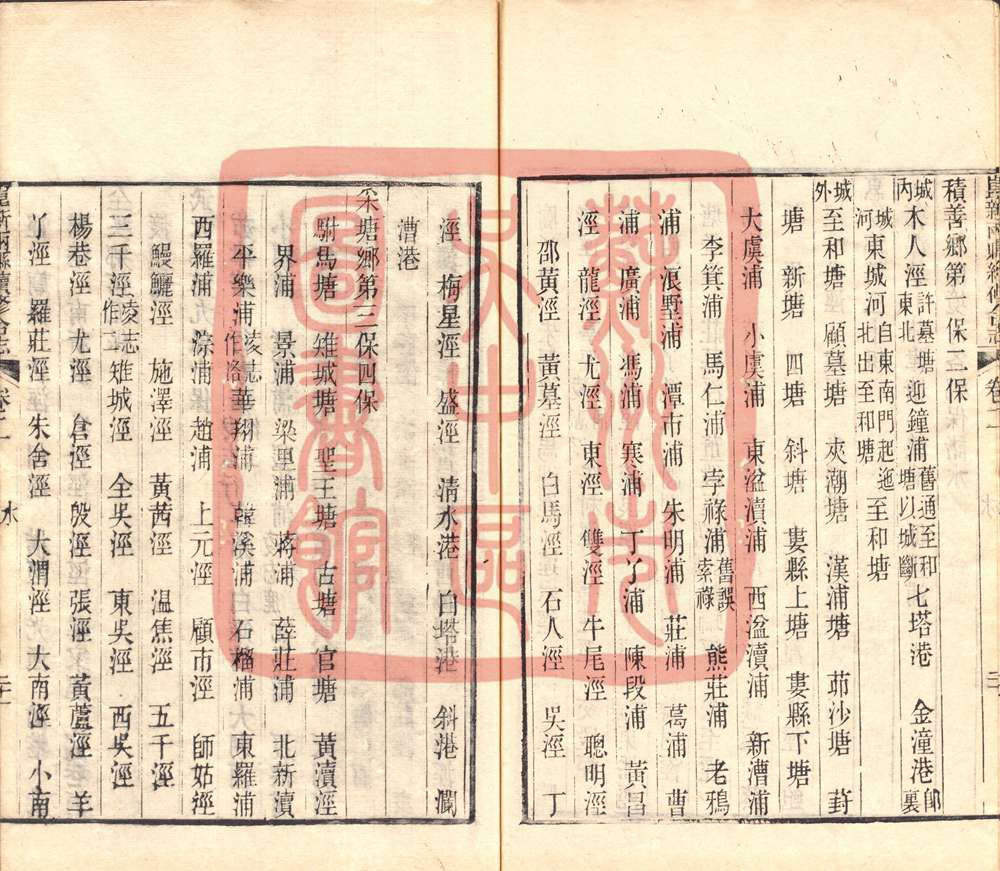 崑新兩縣續修合志 卷二
積善鄉第 保三保
城內 木人涇 許墓塘東北 迎鐘浦 舊通至和塘以城斷 七塔港 金潼港 郎裏
城河 東城河 自東南門起迤北出至和塘 至和塘
城外 至和塘 顧墓塘 夾潮塘 漢浦塘 茆沙塘 葑
塘 新塘 四塘 斜塘 婁縣上塘 婁縣下塘
大虞浦 小虞浦 東湓瀆浦 西湓瀆浦 新漕浦
李箕浦 馬仁浦 孛祿浦 舊誤索祿 熊莊浦 老鴉
浦 浪墅浦 潭市浦 朱明浦 莊浦 葛浦 曹
浦 廣浦 馮浦 寒浦 丁丫浦 陳段浦 黃昌
涇 龍涇 尤涇 東涇 雙涇 牛尾涇 聰明涇
邵黃涇 黃墓涇 白馬涇 石人涇 吳涇 丁
涇 梅星涇 盛涇 清水港 白塔港 斜港 瀾
漕港
朱塘鄉第三保四保
駙馬塘 雉城塘 聖王塘 古塘 官塘 黃瀆涇
界浦 景浦 梁里浦 蔣浦 薛莊浦 北新瀆
平樂浦 凌志作洛 華翔浦 韓溪浦 石榴浦 東羅浦
西羅浦 淙浦 趙浦 上元涇 顧市涇 師姑徑
鰻鱺涇 施澤涇 黃茜涇 温焦涇 五千涇
三千涇 凌志作江 雉城涇 全吳涇 東吳涇 西吳涇
楊巷涇 尤涇 倉涇 殷涇 張涇 黃蘆涇 羊
丫涇 羅莊涇 朱舍涇 大澗涇 大南涇 小南
崑新兩縣續修合志 卷二 水 二十
蘇州市吳中區圖書館